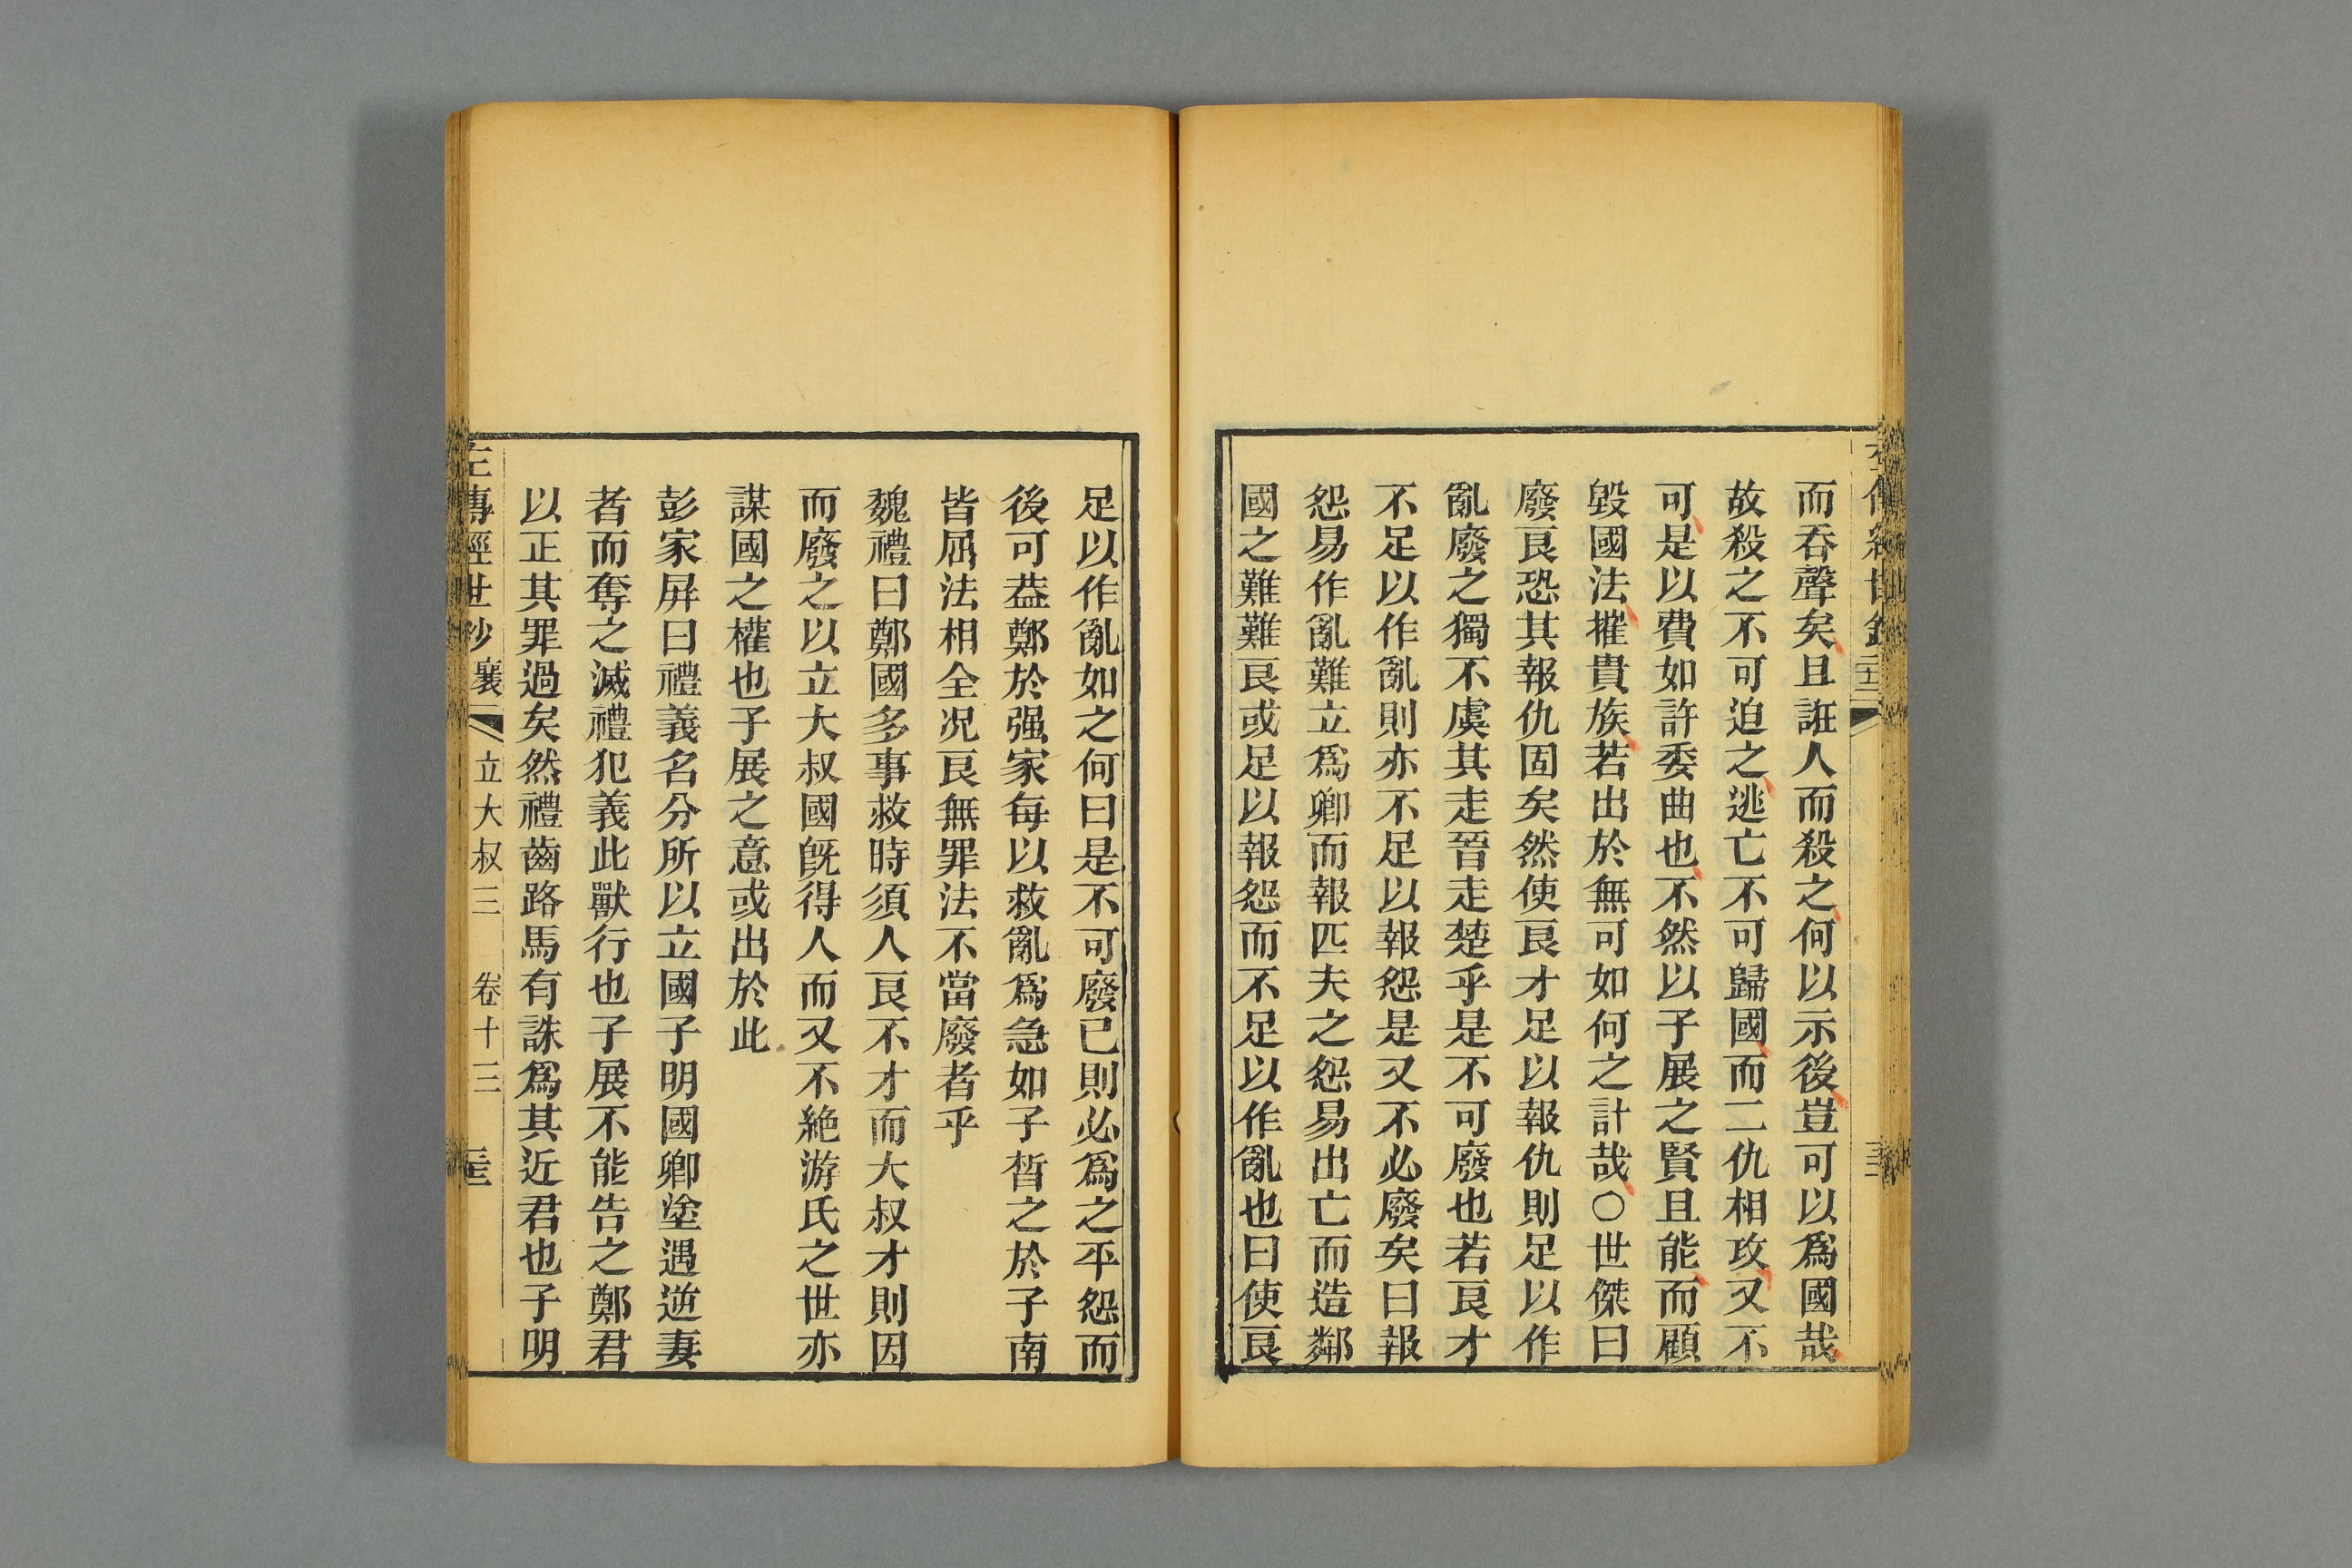 而吞聲矣且誑人而殺之何以示後豈可以爲國哉
故殺之不可迫之逃亡不可歸國而二仇相攻又不
可是以費如許委曲也不然以子展之賢且能而顧
毀國法摧貴族若出於無可如何之計哉○世傑曰
廢良恐其報仇固矣然使良才足以報仇則足以作
亂廢之獨不虞其走晉走楚乎是不可廢也若良才
不足以作亂則亦不足以報怨是又不必廢矣曰報
怨易作亂難立爲卿而報匹夫之怨易出亡而造鄰
國之難難良或足以報怨而不足以作亂也曰使良
足以作亂如之何曰是不可廢已則必爲之平怨而
後可葢鄭於强家每以救亂爲急如子晳之於子南
皆屈法相全况良無罪法不當廢者乎
魏禮曰鄭國多事救時須人良不才而大叔才則因
而廢之以立大叔國旣得人而又不絶游氏之世亦
謀國之權也子展之意或出於此
彭家屏曰禮義名分所以立國子明國卿塗遇逆妻
者而奪之滅禮犯義此獸行也子展不能告之鄭君
以正其罪過矣然禮齒路馬有誅爲其近君也子明
左傳經世鈔 襄 立大叔三 卷十三